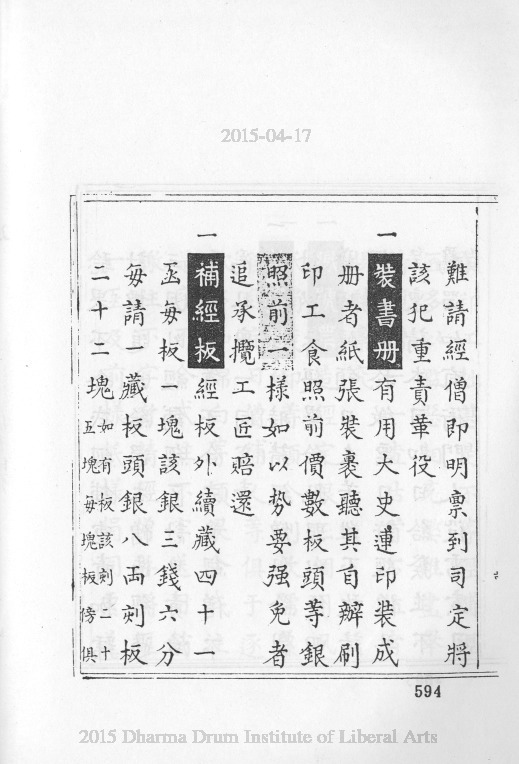 2015-04-17
難請經僧即明禀到司定將
該犯重責革役
一裝書册有用大史連印裝成
册者紙張裝裹聽其自辦刷
印工食照前價數板頭等銀
照前一樣如以势要强免者
追承攬工匠賠還
一補經板經板外續藏四十一
函每板一塊該銀三錢六分
每請一藏板頭銀八両刻板
二十二塊如有板該刻二十
五塊每塊板傍俱
594
2015 Dharma Drum Institute of Liberal Arts